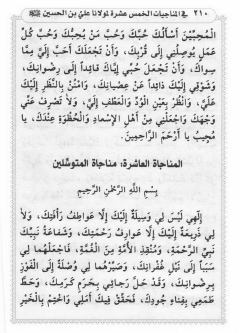 ٢١٠ في المناجيات الخمس عشرة لمولانا علي بن الحسين
الْمُحِبِّينَ أَسْأَلُكَ حُبَّكَ وَحُبَّ مَنْ يُحِبُّكَ وَحُبَّ كُلِّ
عَمَلٍ يُوصِلُنِي إِلَى قُرْبِكَ، وَأَنْ تَجْعَلَكَ أَحَبَّ إِلَيَّ مِمَّا
سِوَاكَ، وَأَنْ تَجْعَلَ حُبِّي إِيَّاكَ قَائِداً إِلَى رِضْوَانِكَ،
وَشَوْقِي إِلَيْكَ ذَائِداً عَنْ عِصْيَانِكَ، وَامْنُنْ بِالنَّظَرِ إِلَيْكَ
عَلَيَّ، وَانْظُرْ بِعَيْنِ الْوُدِّ وَالْعَطْفِ إِلَيَّ، وَلَا تَصْرِفْ عَنِّي
وَجْهَكَ وَاجْعَلْنِي مِنْ أَهْلِ الْإِسْعَادِ وَالْحُظْوَةِ عِنْدَكَ، يَا
مُجِيبُ يَا أَرْحَمَ الرَّاحِمِينَ.
المناجاة العاشرة: مناجاة المتوسلين
بِسْمِ اللهِ الرَّحْمٰنِ الرَّحِيمِ
إِلٰهِي لَيْسَ لِي وَسِيلَةٌ إِلَيْكَ إِلَّا عَوَاطِفُ رَأْفَتِكَ، وَلَا
لِي ذَرِيعَةٌ إِلَيْكَ إِلَّا عَوَارِفُ رَحْمَتِكَ، وَشَفَاعَةُ نَبِيِّكَ
نَبِيِّ الرَّحْمَةِ، وَمُنْقِذِ الْأُمَّةِ مِنَ الْغُمَّةِ، فَاجْعَلْهُمَا لِي
سَبَباً إِلَى نَيْلِ غُفْرَانِكَ، وَصَيِّرْهُمَا لِي وُصْلَةً إِلَى الْفَوْزِ
بِرِضْوَانِكَ، وَقَدْ حَلَّ رَجَائِي بِحَرَمِ كَرَمِكَ، وَحَطَّ
طَمَعِي بِفِنَاءِ جُودِكَ، فَحَقِّقْ فِيكَ أَمَلِي وَاخْتِمْ بِالْخَيْرِ